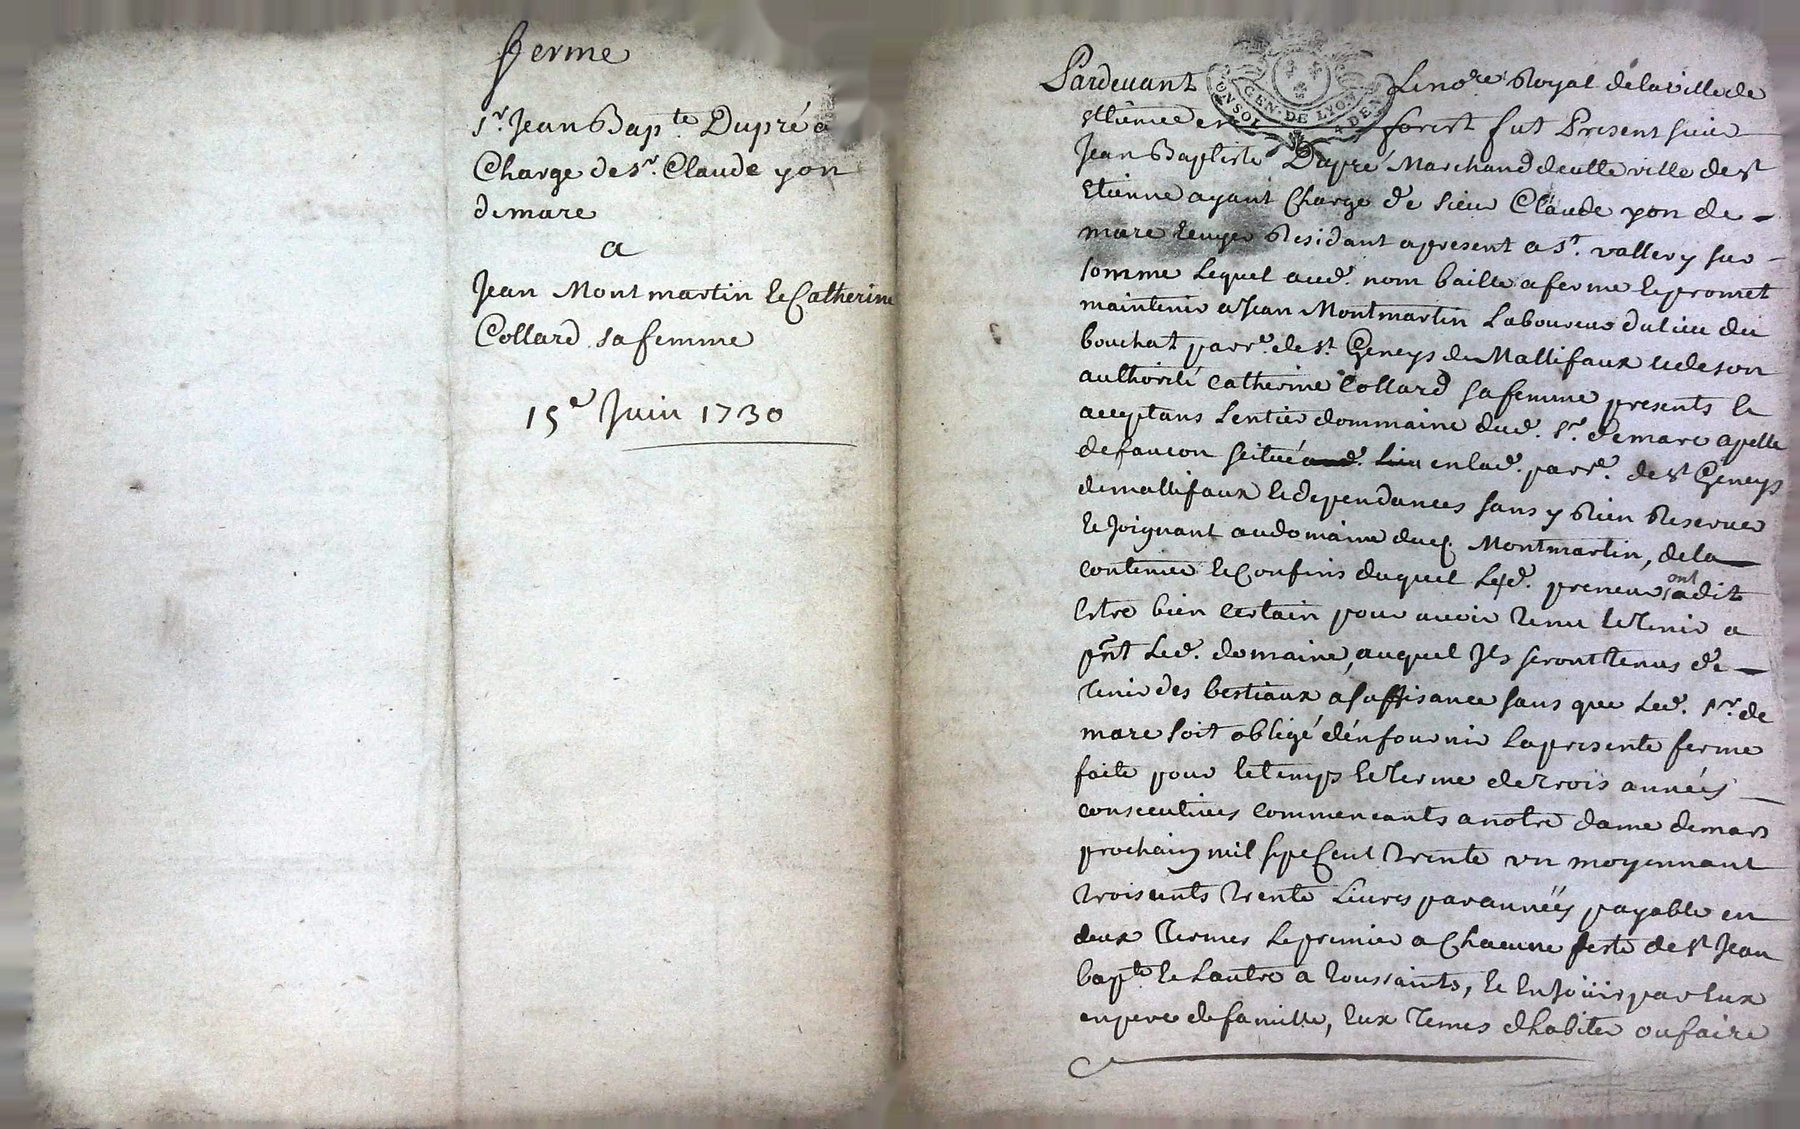 ferme
Sr. Jean Bapte. Dupré a
Charge de Sr. Claude yon
de mare
a
Jean Montmartin et Catherine
Collard sa femme
15e Juin 1730
GEN. DE LYON
4 DEN
Pardevant Le nore Royal de la ville de
st Etienne en forest fut Present sieur
Jean Baptiste Dupré Marchand de cette ville de st
Etienne ayant Charge de sieur Claude yon de
mare Ecuyer Residant apresent a st. vallery sur
somme Lequel aud. nom baille a ferme et promet
maintenir a Jean Montmartin Laboureur du lieu du
bouchat parre. de st. Geneys de Mallifaux et de son
authorité Catherine Collard sa femme presents et
acceptans Lentier dommaine dud. sr. de mare apellé
de faucon scitué en lad. parre. de st Geneys
de mallifaux et dependances sans y Rien Reserver
et Joignant au domaine dud. Montmartin, de la
contenue et Confins duquel Led. preneurs ont dit
Estre bien certain pour avoir tenu et tenir a
pnt Led. domaine, auquel Ils seront tenus de
tenir des bestiaux a suffisance sans que Led. sr. de
mare soit obligé dénfournir La presente ferme
faite pour le temps et terme de trois années
consecutives commencants a notre dame de mars
prochain mil sept Cent trente un moyennant
troiscents trente Livres par années payable en
deux termes Le premier a Chacune feste de st Jean
bapte. et Lautre a toussaints, et En Joüir par Eux
en pere de famille, Eux tenus dhabiter ou faire